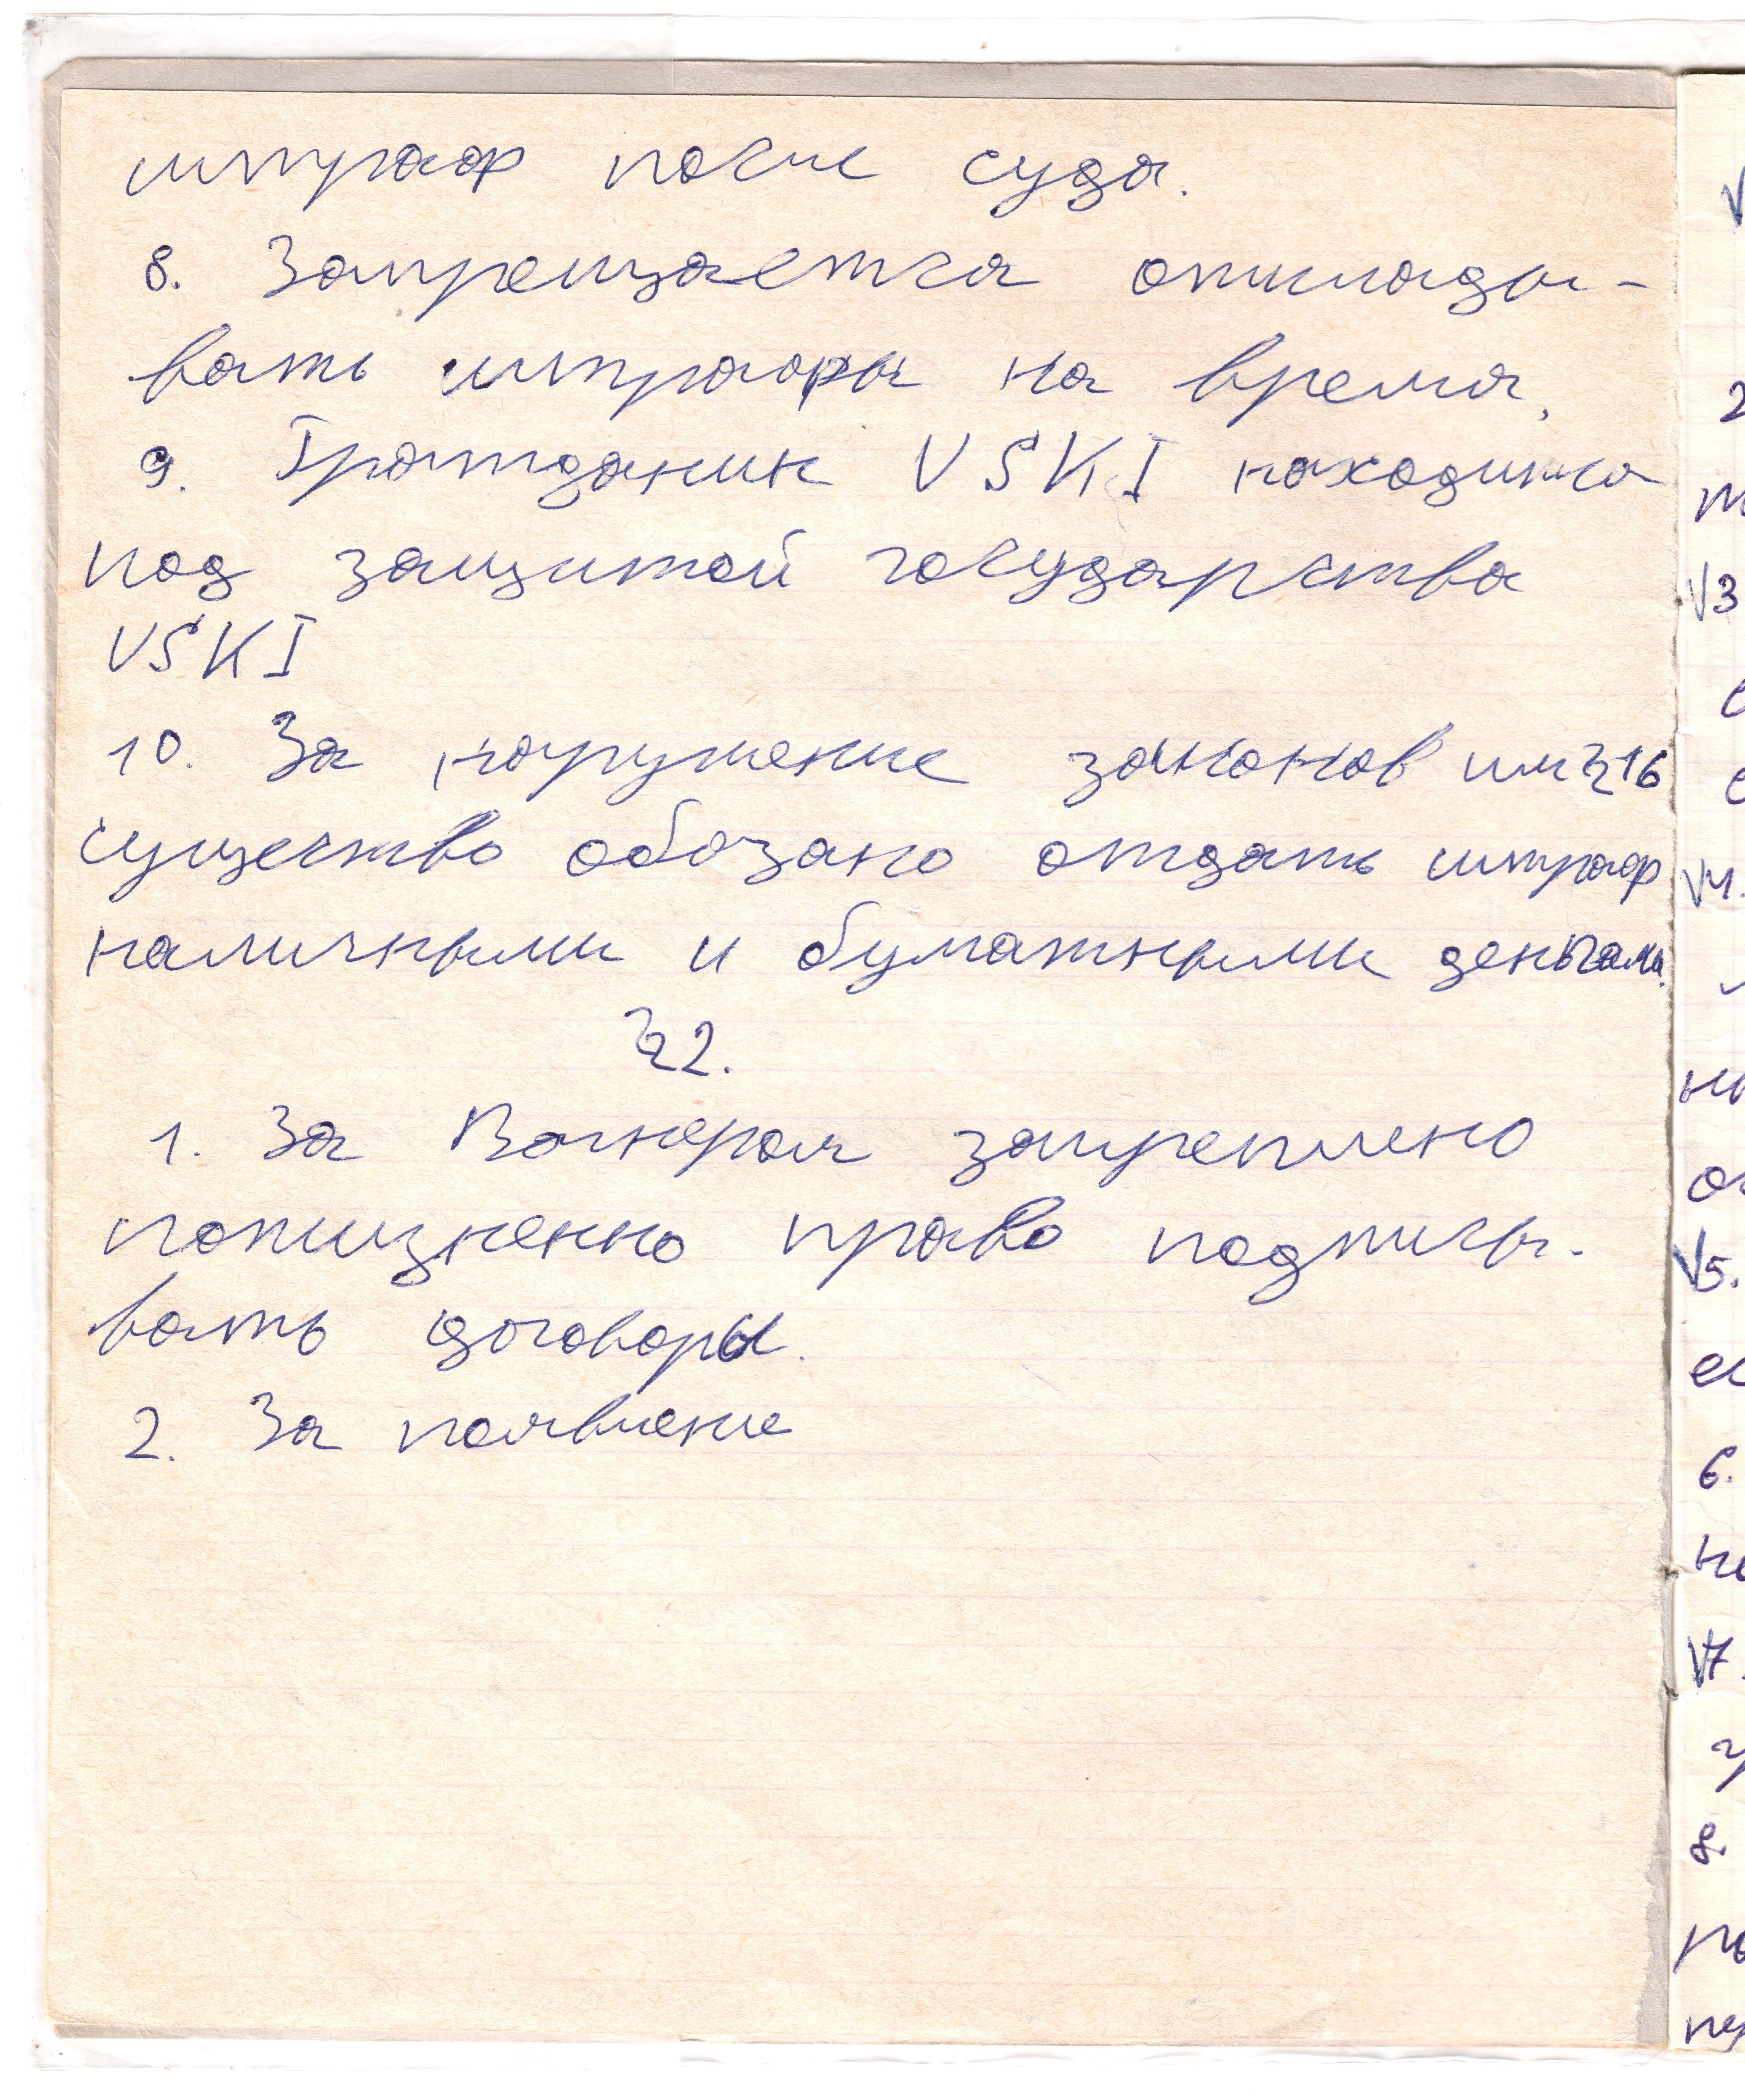 штраф после суда.
8. Запрещается откклады-
вать штрафы на время.
9. Гражданин VSKI находится
под защитой государства
VSKI
10. За нарушение законов
существо обязано отдать штраф
наличными и бумажными деньгами.
§2.
1. За закреплено
пожизненно право подписы-
вать договоры.
2. За появление
2
3
4.
5.
6.
7.
8.